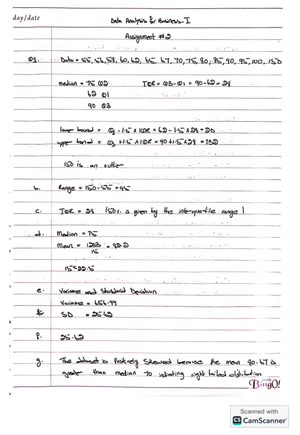 day/date
Data Analysis for Business-I
Assignment #2
Q1. Data = 55, 56, 58, 60, 62, 65, 67, 70, 75, 80, 85, 90, 95, 100, 150
median = 75 Q2 IQR = Q3-Q1 = 90-62 = 28
62 Q1
90 Q3
lower bound = Q1-1.5 x IQR = 62-1.5x28 = 20
upper bound = Q3+1.5 x IQR = 90+1.5x28 = 132
150 is an outlier
b. Range = 150-55 = 95
c. IQR = 28 (50% is given by the interquartile range)
d. Median = 75
Mean = =
15
e. Variance and Standard Deviation
Variance = 656.99
SD = 25.62
f. 25.62
g. The dataset is Positively Skewed because the mean is
greater than median to indicating right tailed distribution
BingO!
Scanned with
CS CamScanner